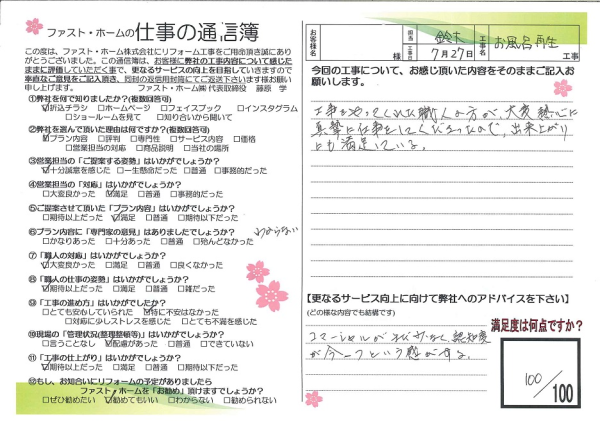 ファスト・ホームの仕事の通信簿
この度は、ファスト・ホーム株式会社にリフォーム工事をご用命頂き誠にあり
がとうございました。この通信簿は、お客様に弊社の工事内容について感じた
ままに評価していただく事で、更なるサービスの向上を目指していきますので
率直なご意見をご記入頂き、同封の返信用封筒にてご返送下さいます様お願い
申し上げます。
ファスト・ホーム㈱ 代表取締役 藤原 学
①弊社を何で知りましたか?(複数回答可)
☑折込チラシ □ホームページ □フェイスブック □インスタグラム
□ショールームを見て □知り合いから聞いて
②弊社を選んで頂いた理由は何ですか?(複数回答可)
☑プラン内容 □評判 □専門性 □サービス内容 □価格
□営業担当の対応 □商品説明 □当社の場所
③営業担当の「ご提案する姿勢」はいかがでしょうか?
☑十分誠意を感じた □一生懸命だった □普通 □事務的だった
④営業担当の「対応」はいかがでしょうか?
□大変良かった ☑満足 □普通 □事務的だった
⑤ご提案させて頂いた「プラン内容」はいかがでしょうか?
□期待以上だった ☑満足 □普通 □期待以下だった
⑥プラン内容に「専門家の意見」はありましたでしょうか?
わからない
□かなりあった □十分あった □普通 □殆んどなかった
⑦「職人の対応」はいかがでしょうか?
☑大変良かった □満足 □普通 □良くなかった
⑧「職人の仕事の姿勢」はいかがでしょうか?
☑期待以上だった □満足 □普通 □雑だった
⑨「工事の進め方」はいかがでしょうか?
□とても安心していられた ☑特に不安はなかった
□対応に少しストレスを感じた □とても不満を感じた
⑩現場の「管理状況(整理整頓等)」はいかがでしょうか?
□言うことなし ☑配慮があった □普通 □できていない
⑪「工事の仕上がり」はいかがでしょうか?
☑期待以上だった □満足 □普通 □期待以下だった
⑫もし、お知合いにリフォームの予定がありましたら
ファスト・ホームを「お勧め」頂けますでしょうか?
□ぜひ勧めたい ☑勧めてもいい □わからない □勧められない
お客様名 様 担当 鈴木 工事日 7月27日 工事名 お風呂再生 工事
今回の工事について、お感じ頂いた内容をそのままご記入お
願いします。
工事をやってくれた職人の方が、大変熱心に
真摯に仕事をしてくださったので、出来上がり
にも満足している。
【更なるサービス向上に向けて弊社へのアドバイスを下さい】
(どの様な内容でも結構です)
コマーシャルが少なく、認知度
が今一つという感がする。
満足度は何点ですか?
100
/100